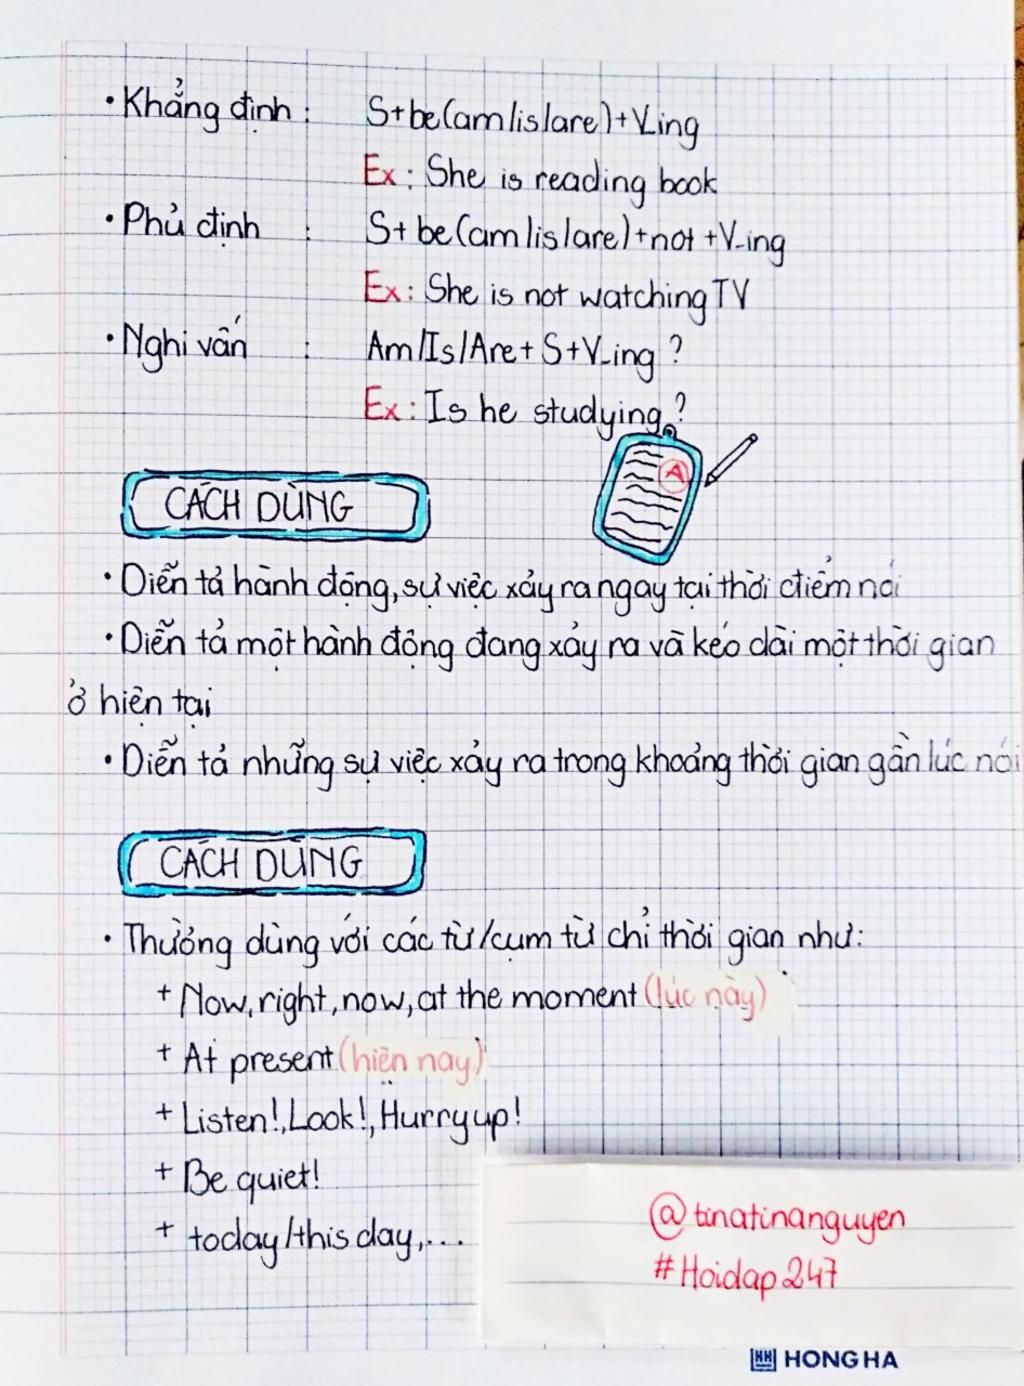 • Khẳng định : S+be(am/is/are)+V_ing
Ex: She is reading book
• Phủ định : S+ be(am/is/are)+not +V_ing
Ex: She is not watching TV
• Nghi vấn : Am/Is/Are+ S+V_ing ?
Ex: Is he studying ?
A
CÁCH DÙNG
• Diễn tả hành động, sự việc xảy ra ngay tại thời điểm nói
• Diễn tả một hành động đang xảy ra và kéo dài một thời gian
ở hiện tại
• Diễn tả những sự việc xảy ra trong khoảng thời gian gần lúc nói
CÁCH DÙNG
• Thường dùng với các từ/cụm từ chỉ thời gian như:
+ Now, right, now, at the moment (lúc này)
+ At present (hiện nay)
+ Listen!, Look!, Hurry up!
+ Be quiet!
+ today/this day,...
@tinatinanguyen
#Hoidap247
HONG HA